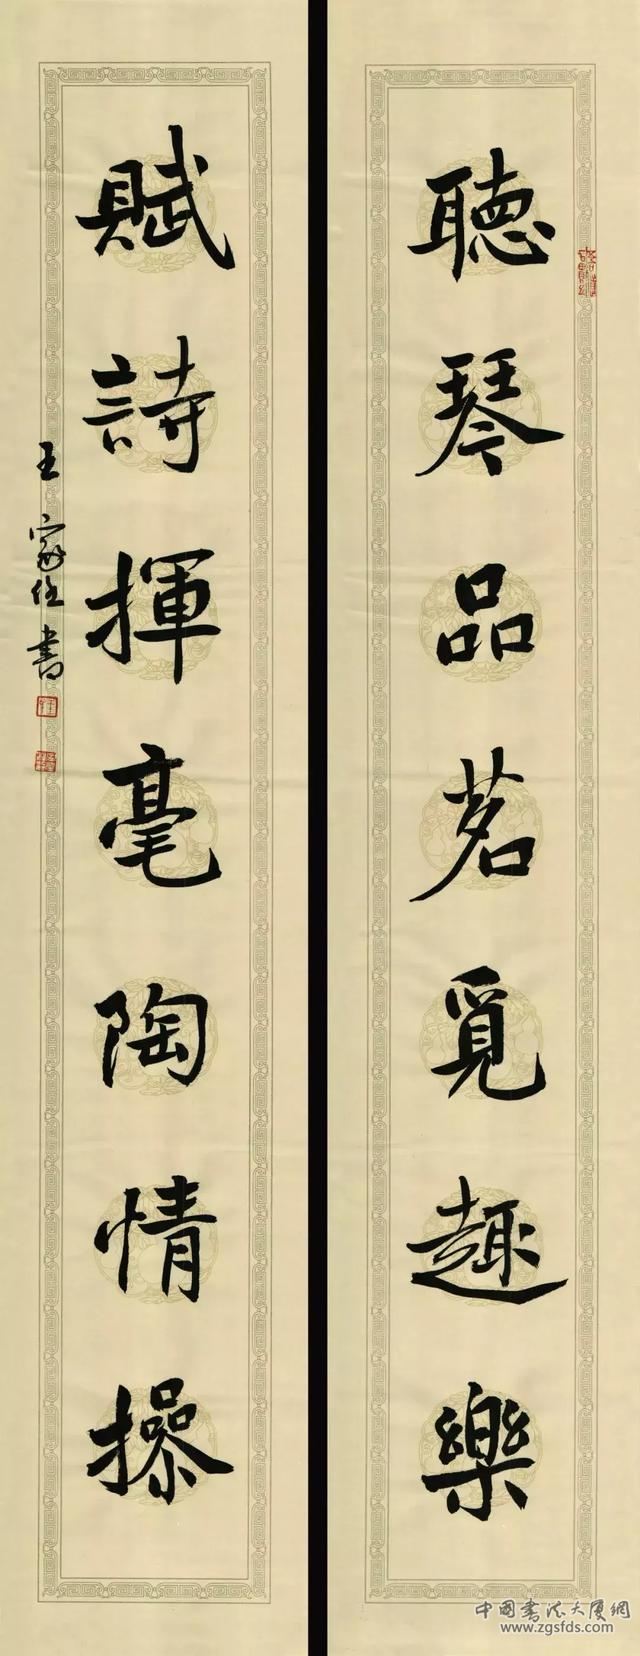 聽琴品茗覓趣樂
賦詩揮毫陶情操
王家住書
中國書法大廈網
www.zgsfds.com